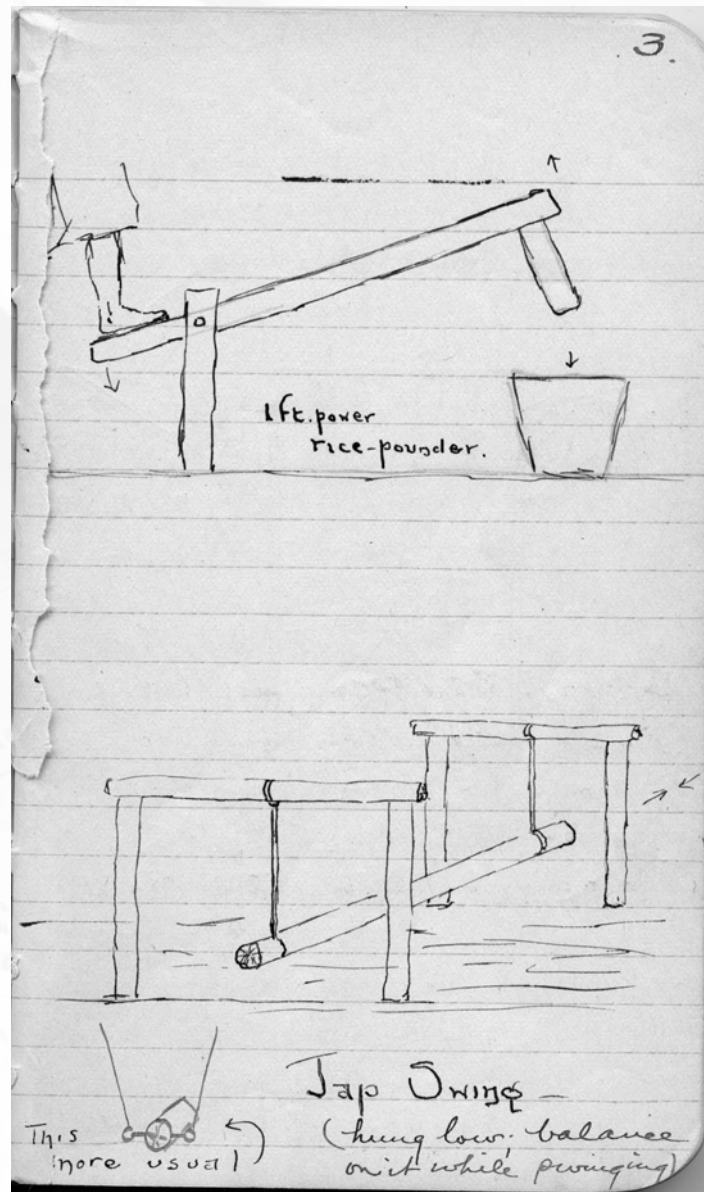 3.
1 ft. power
rice-pounder.
Jap Swing –
(hung low; balance
on it while swinging)
This
more usual)